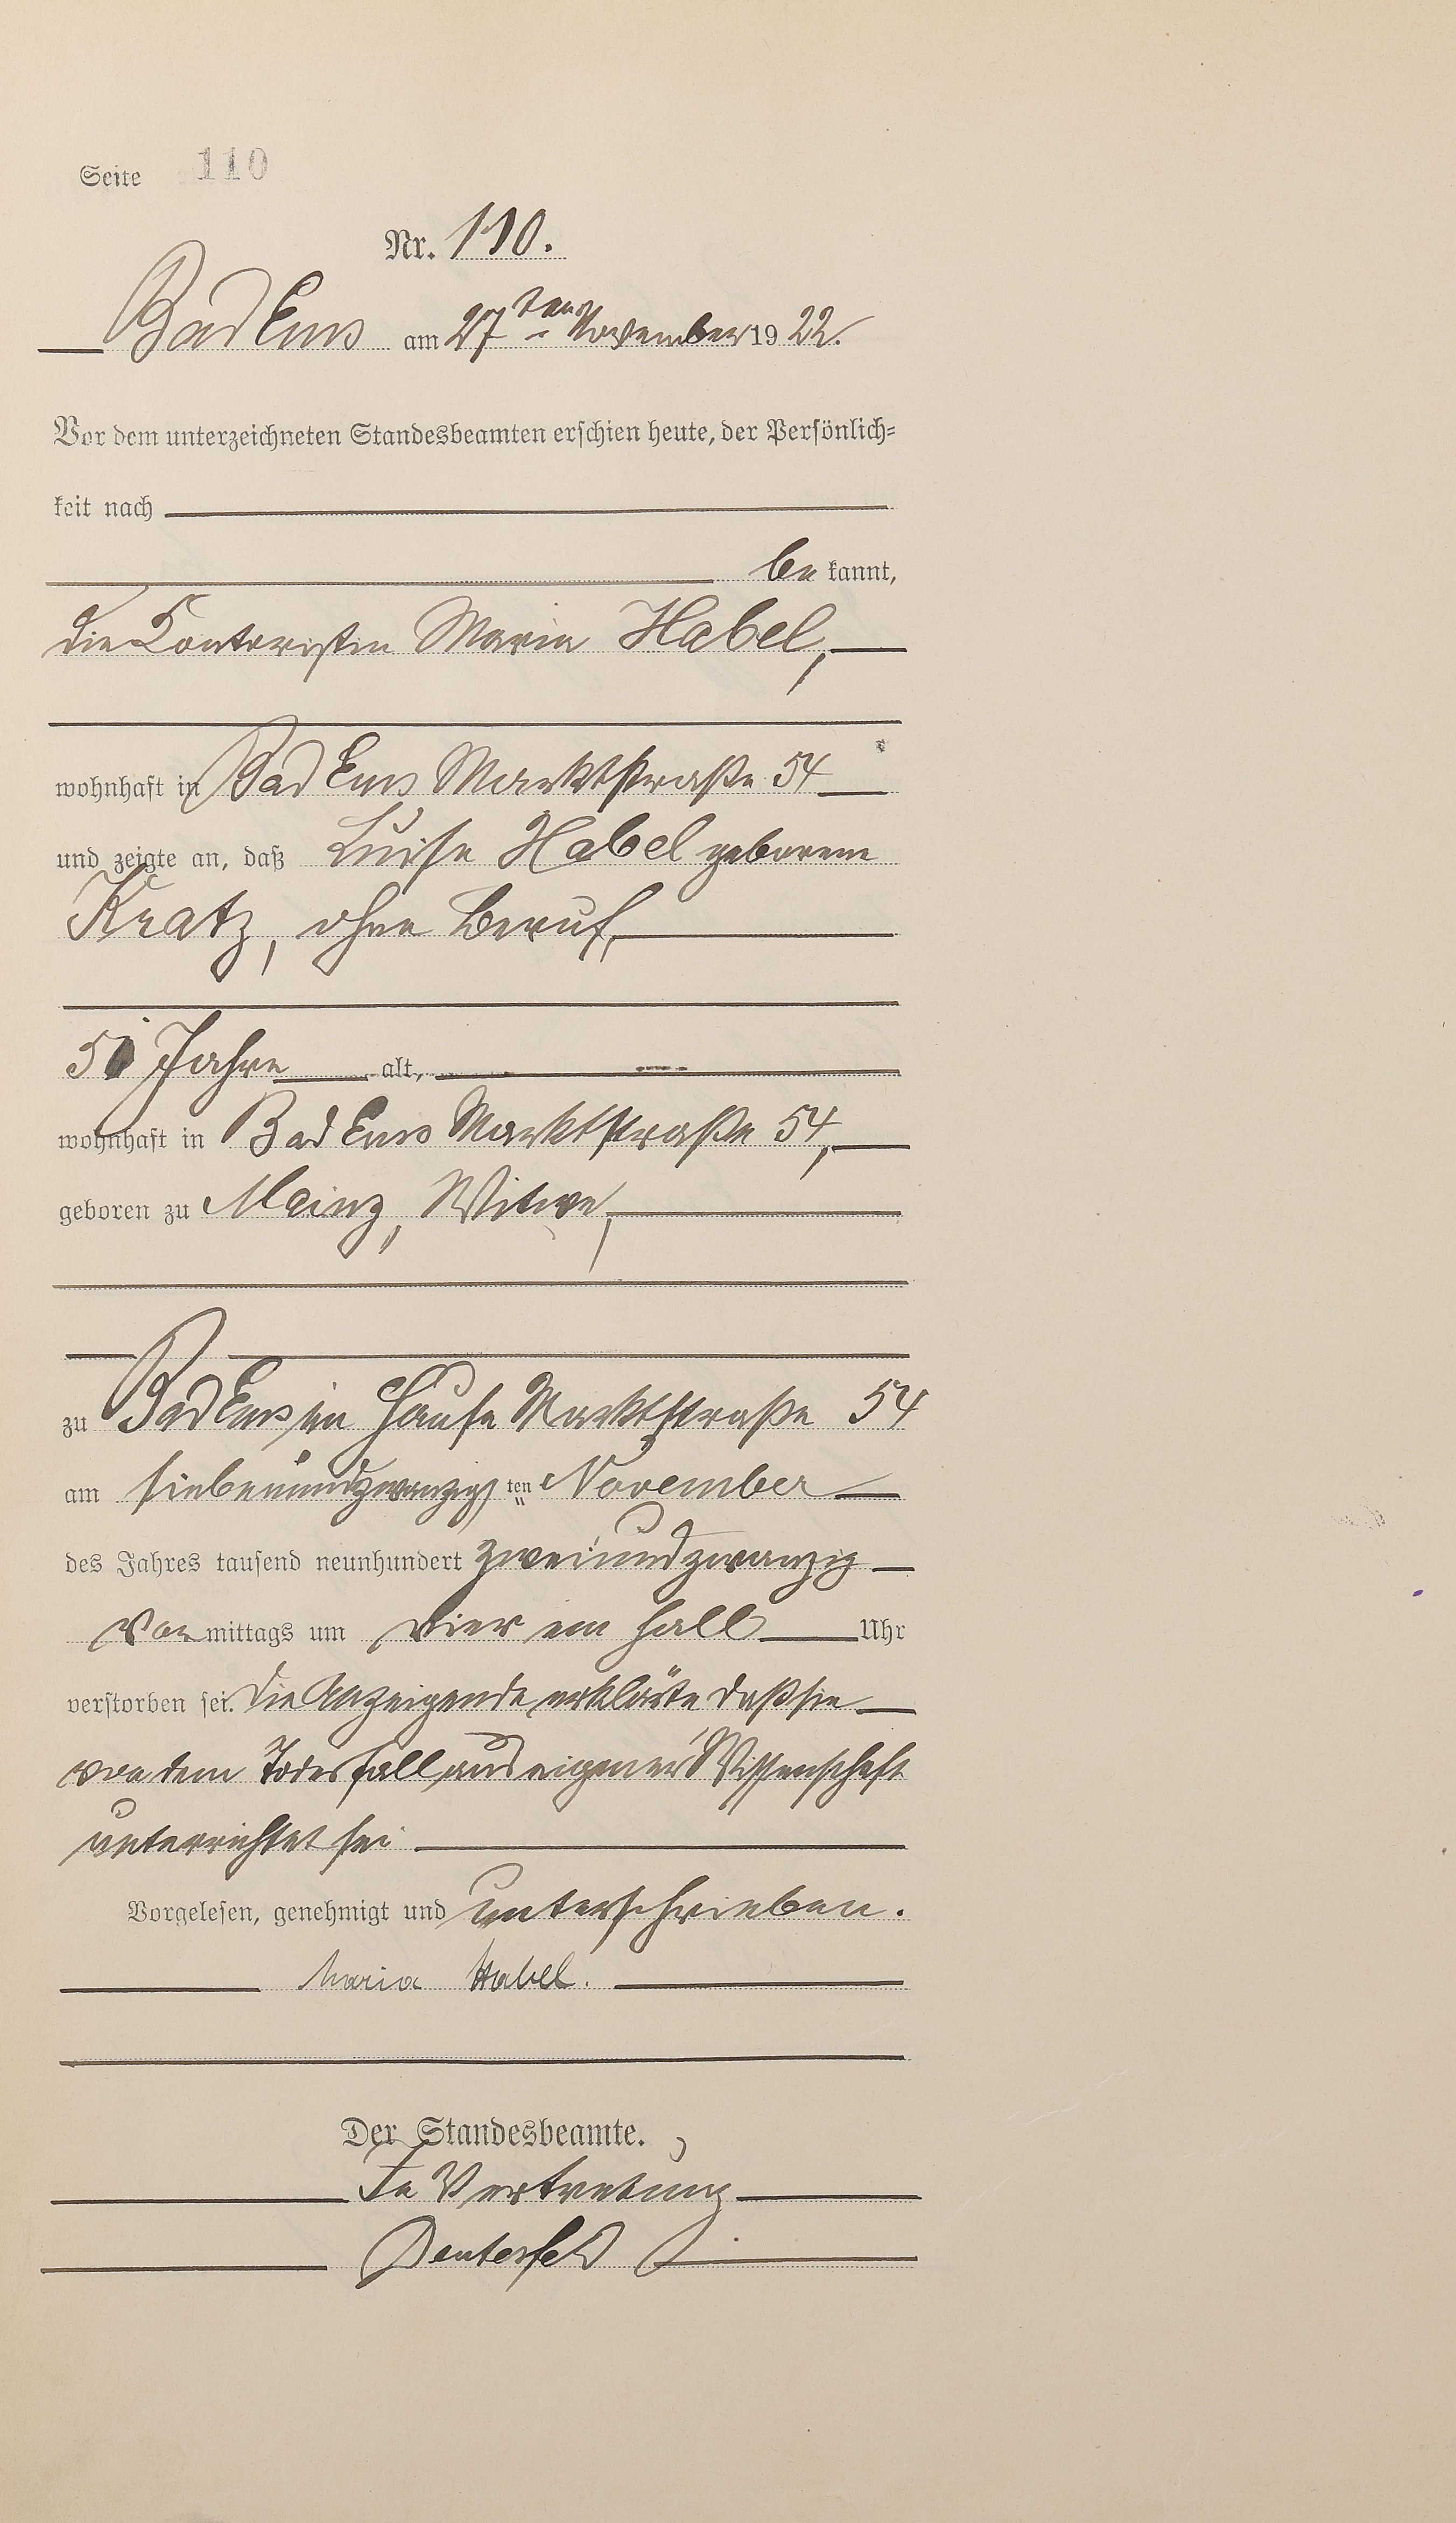 Seite 110
Nr. 110.
Bad Ems am 27ten November 1922.
Vor dem unterzeichneten Standesbeamten erschien heute, der Persönlich-
keit nach
be kannt,
die Kontoristin Maria Habel,
wohnhaft in Bad Ems Marktstraße 54
und zeigte an, daß Luise Habel geborene
Kratz, ohne Beruf,
Jahre alt,
wohnhaft in Bad Ems Marktstraße 54,
geboren zu Mainz, Witwe,
zu Bad Ems im Hause Marktstraße 54
am siebenundzwanzig ten November
des Jahres tausend neunhundert zweiundzwanzig
Vor mittags um vier ein halb Uhr
verstorben sei. Die Anzeigende erklärte daß sie
von dem Todesfall aus eigener Wissenschaft
unterrichtet sei
Vorgelesen, genehmigt und unterschrieben.
Maria Habel.
Der Standesbeamte.
In Vertretung